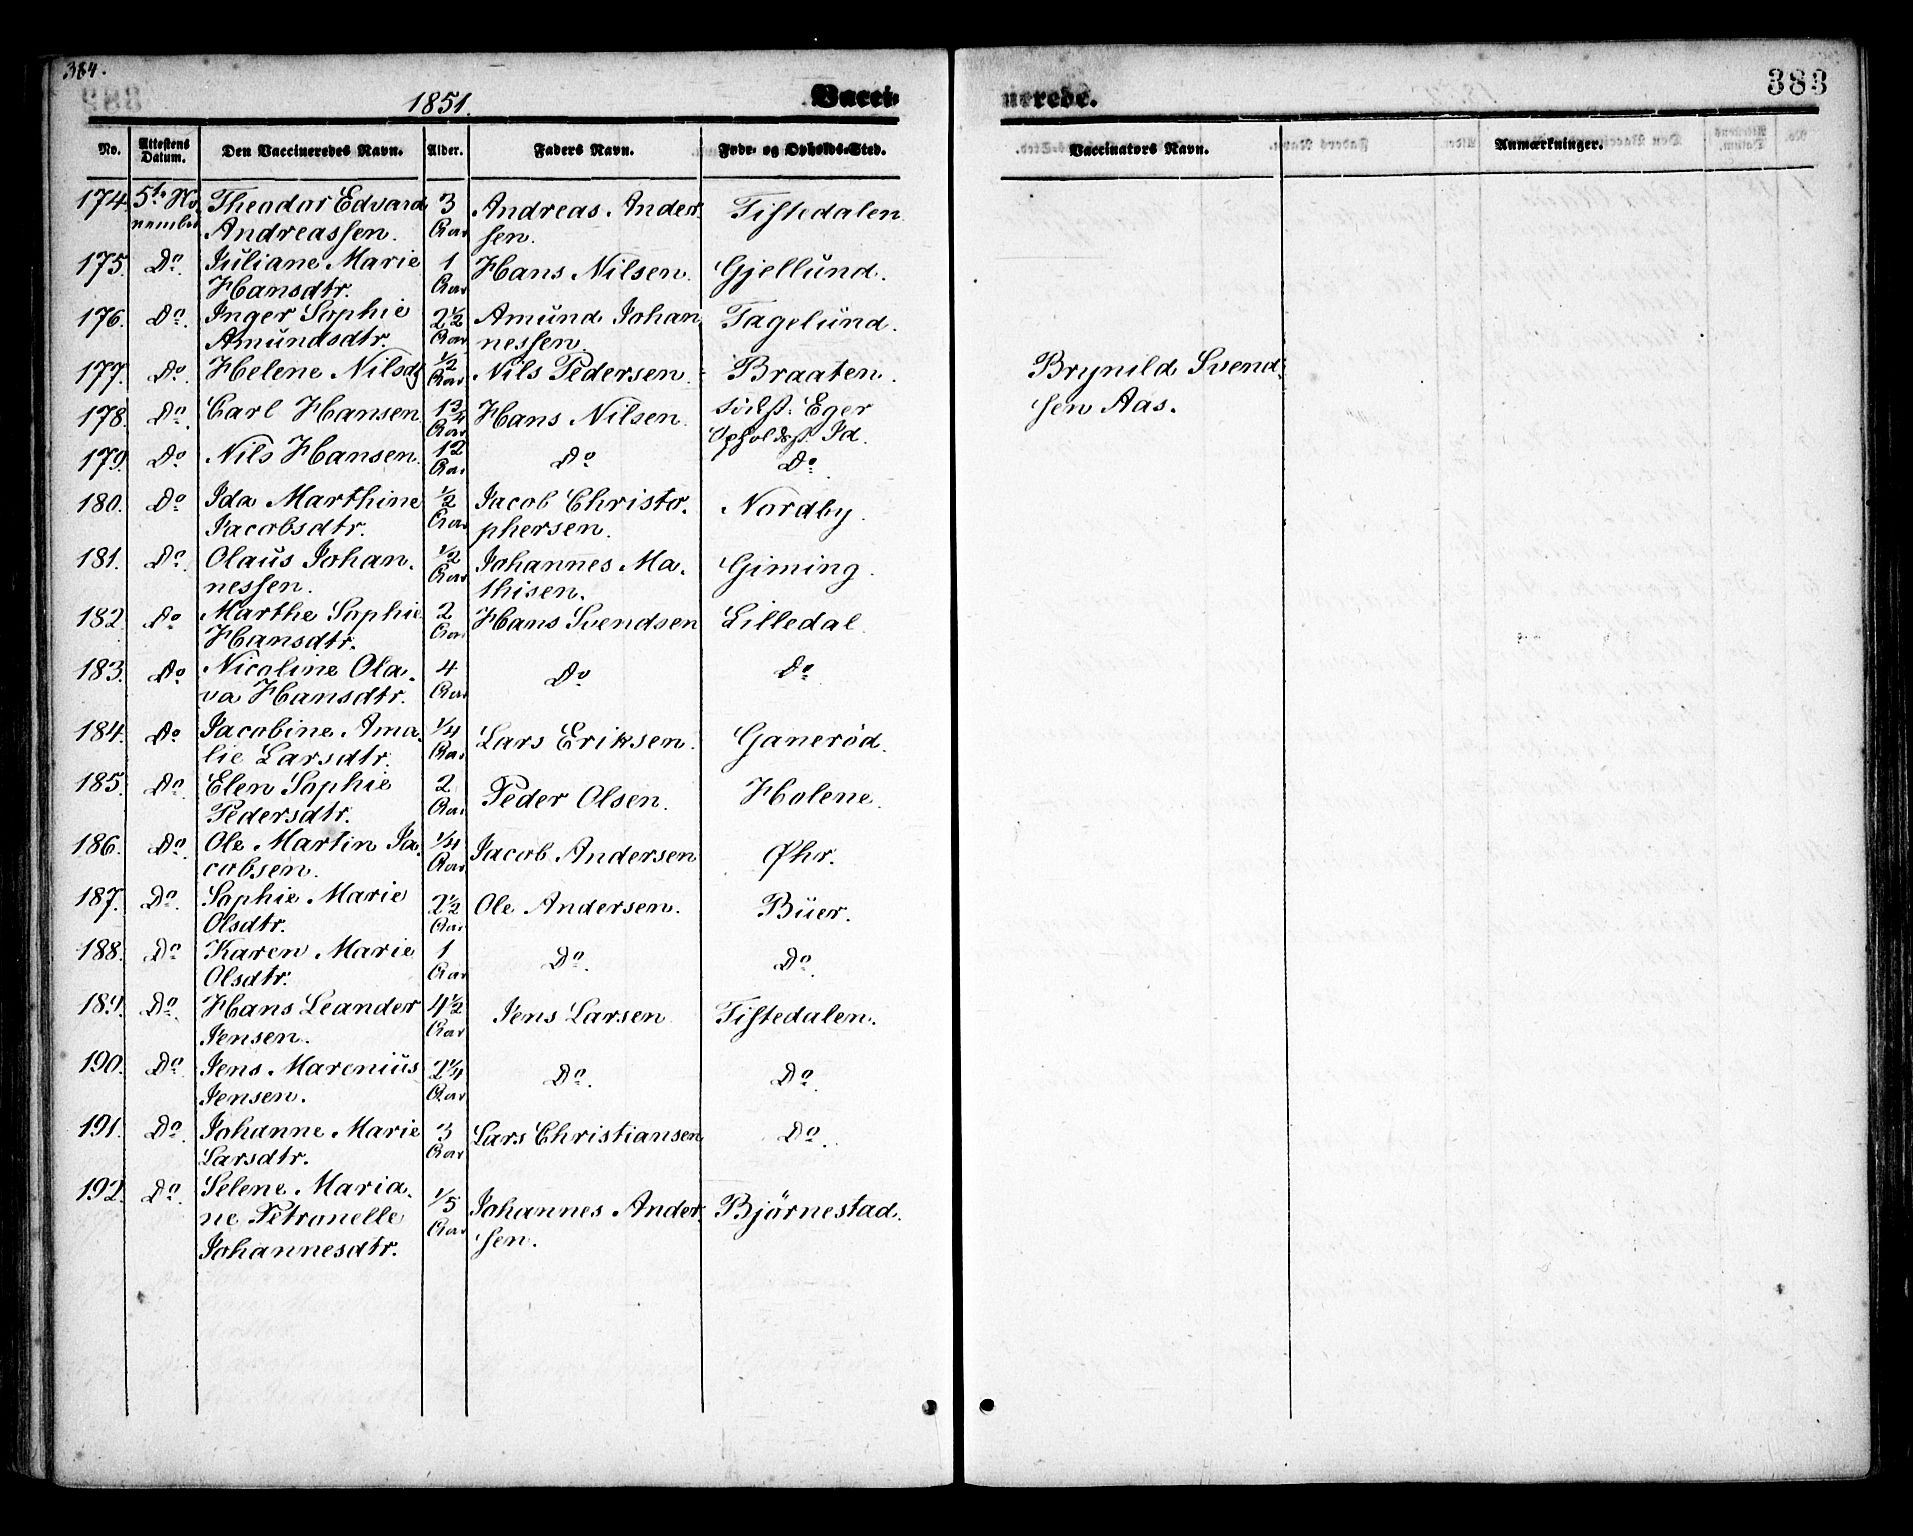 384.
383
1851.
Vacci-
nerede.
No.
Attestens Datum.
Den Vaccineredes Navn.
Alder.
Faders Navn.
Føde- og Opholds-Sted.
Vaccinators Navn.
Anmærkninger.
174. 5te No- Theodor Edvard 3 Andreas Ander Tistedalen.
vember Andreassen. Aar sen.
175. Do. Juliane Marie 1 Hans Nilsen. Gjellund.
Hansdtr. Aar
176. Do. Inger Sophie 2½ Amund Johan Fagelund.
Amundsdtr. Aar nessen.
177. Do. Helene Nilsd ½ Nils Pedersen. Braaten. Brynild Svend-
Aar
178. Do. Carl Hansen 13/4 Hans Nilsen. Födst: Eger sen Aas.
Aar Opholdsst. Id.
179. Do Nils Hansen. 12 Do Do
Aar
180. Do Ida Marthine ½ Jacob Christo- Nordby.
Jacobsdtr. Aar phersen.
181. Do. Olaus Johan- ½ Johannes Ma- Giming.
nessen. Aar thisen.
182 Do Marthe Sophie 2 Hans Svendsen Lilledal.
Hansdtr. Aar
183. Do Nicoline Ola- 4 Do Do
va Hansdtr. Aar
184. Do Jacobine Ama- ¼ Lars Eriksen. Ganeröd.
lie Larsdtr. Aar
185. Do. Elen Sophie 2 Peder Olsen. Holene.
Pedersdtr. Aar
186. Do. Ole Martin Ja- ¼ Jacob Andersen Øhr.
cobsen. Aar
187. Do. Sophie Marie 2½ Ole Andersen. Buer.
Olsdtr. Aar
188. Do Karen Marie 1 Do. Do.
Olsdtr. Aar
189. Do. Hans Leander 4½ Jens Larsen Tistedalen.
Jensen. Aar
190. Do. Jens Marenius 2¼ Do. Do.
Jensen. Aar
191. Do. Johanne Marie 3 Lars Christiansen Do.
Larsdtr. Aar
192. Do. Selene Maria- 1/5 Johannes Ander Björnestad.
ne Petronelle Aar sen.
Johannesdtr.